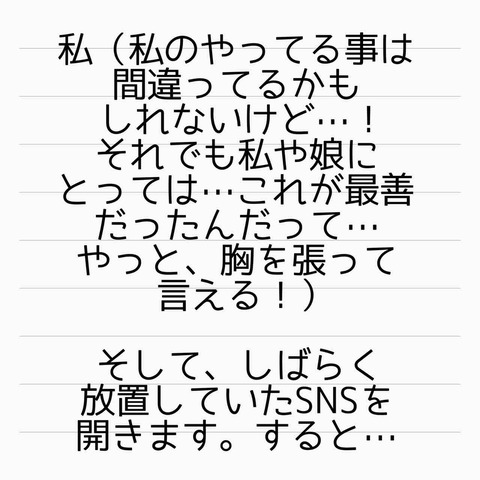 私（私のやってる事は
間違ってるかも
しれないけど…！
それでも私や娘に
とっては…これが最善
だったんだって…
やっと、胸を張って
言える！）
そして、しばらく
放置していたSNSを
開きます。すると…